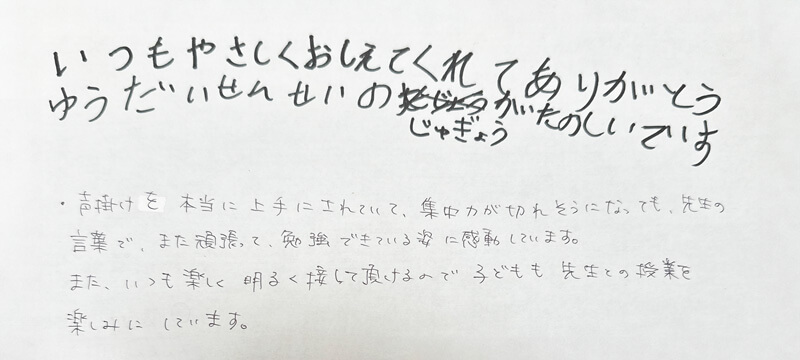 いつもやさしくおしえてくれてありがとう
ゆうだいせんせいのがたのしいです
じゅぎょう
・声掛けを本当に上手にされていて、集中力が切れそうになっても、先生の
言葉で、また頑張って、勉強できている姿に感動しています。
また、いつも楽しく明るく接して頂けるので子どもも先生との授業を
楽しみにしています。